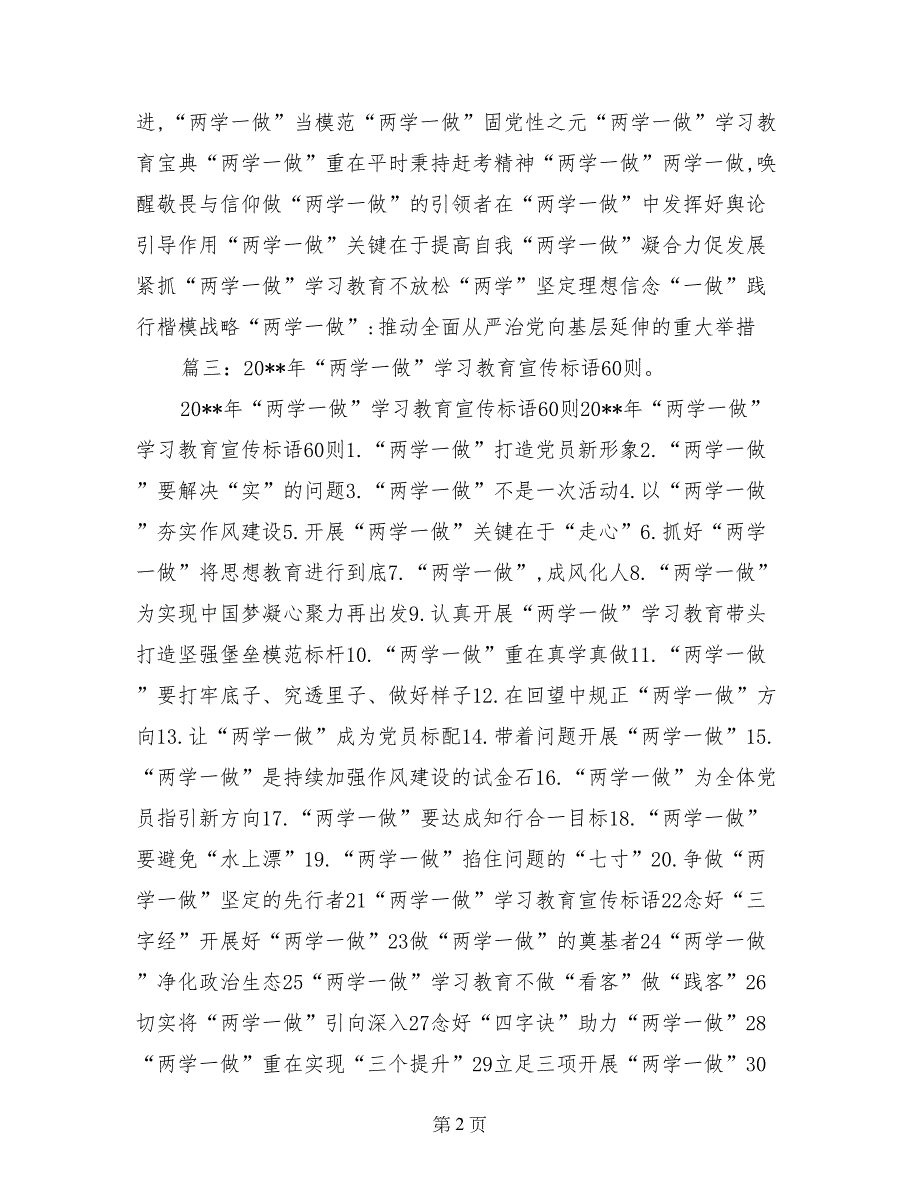 进,“两学一做”当模范“两学一做”固党性之元“两学一做”学习教
育宝典“两学一做”重在平时秉持赶考精神“两学一做”两学一做,唤
醒敬畏与信仰做“两学一做”的引领者在“两学一做”中发挥好舆论
引导作用“两学一做”关键在于提高自我“两学一做”凝合力促发展
紧抓“两学一做”学习教育不放松“两学”坚定理想信念“一做”践
行楷模战略“两学一做”:推动全面从严治党向基层延伸的重大举措
篇三：20**年“两学一做”学习教育宣传标语60则。
20**年“两学一做”学习教育宣传标语60则20**年“两学一做”
学习教育宣传标语60则1.“两学一做”打造党员新形象2.“两学一做
”要解决“实”的问题3.“两学一做”不是一次活动4.以“两学一做
”夯实作风建设5.开展“两学一做”关键在于“走心”6.抓好“两学
一做”将思想教育进行到底7.“两学一做”,成风化人8.“两学一做”
为实现中国梦凝心聚力再出发9.认真开展“两学一做”学习教育带头
打造坚强堡垒模范标杆10.“两学一做”重在真学真做11.“两学一做
”要打牢底子、究透里子、做好样子12.在回望中规正“两学一做”方
向13.让“两学一做”成为党员标配14.带着问题开展“两学一做”15.
“两学一做”是持续加强作风建设的试金石16.“两学一做”为全体党
员指引新方向17.“两学一做”要达成知行合一目标18.“两学一做”
要避免“水上漂”19.“两学一做”掐住问题的“七寸”20.争做“两
学一做”坚定的先行者21“两学一做”学习教育宣传标语22念好“三
字经”开展好“两学一做”23做“两学一做”的奠基者24“两学一做
”净化政治生态25“两学一做”学习教育不做“看客”做“践客”26
切实将“两学一做”引向深入27念好“四字诀”助力“两学一做”28
“两学一做”重在实现“三个提升”29立足三项开展“两学一做”30
第 2 页